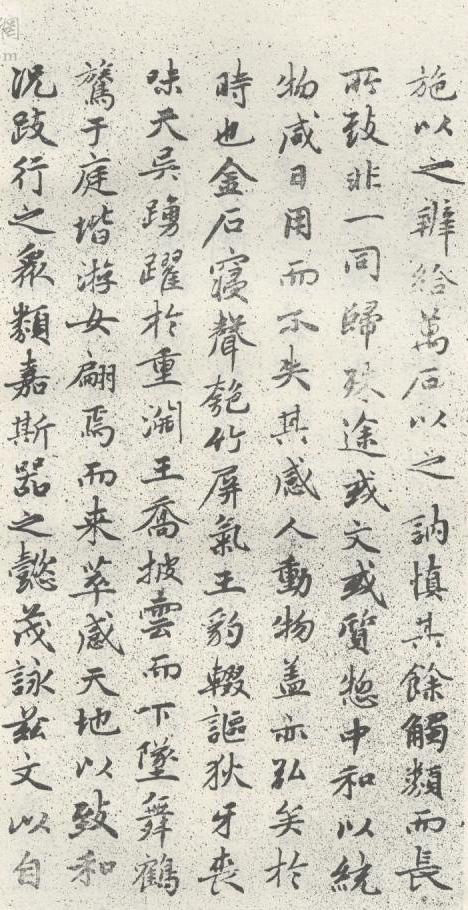 施以之辨給萬石以之訥慎其餘觸類而長
所致非一同歸殊途或文或質惣中和以統
物咸日用而不失其感人動物盖亦弘矣於
時也金石寢聲匏竹屏氣王豹輟謳狄牙喪
味天吳踴躍於重淵王喬披雲而下墜舞鶴
鷟于庭堦游女翩焉而来萃感天地以致和
况跂行之眾類嘉斯器之懿茂詠茲文以自